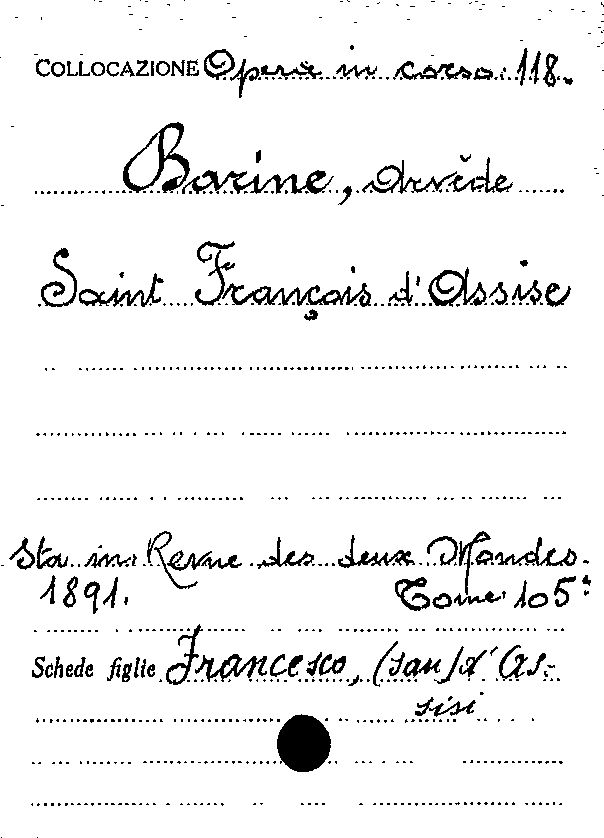 COLLOCAZIONE Opera in corso. 118.
Barine, Arvède
Saint François d'Assise
Sta in: Revue des deux Mondes.
1891. Tome 105º
Schede figlie Francesco, (san) d'As-
sisi